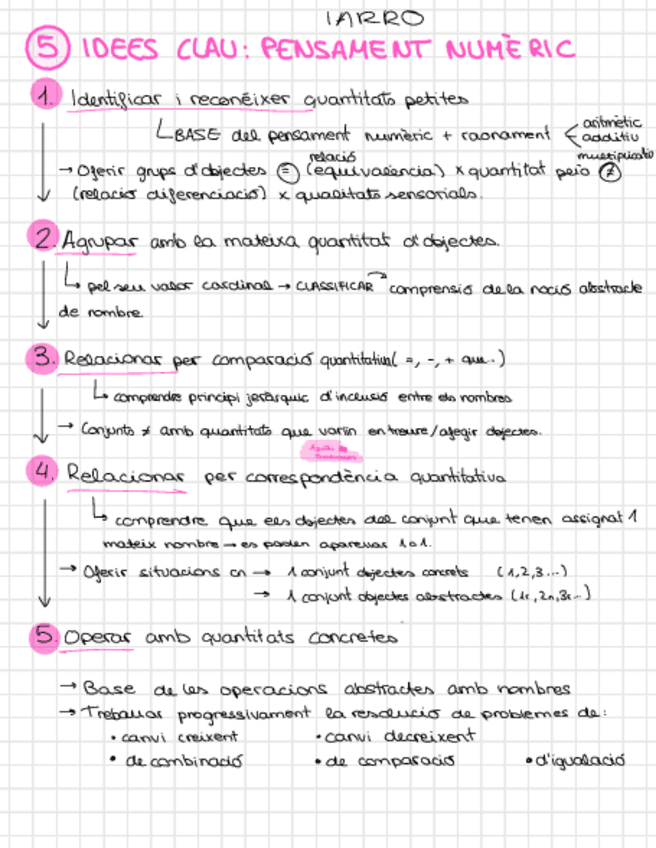 IARRO
5 IDEES CLAU: PENSAMENT NUMÈRIC
1. Identificar i reconéixer quantitats petites
BASE del pensament numèric + raonament < aritmètic
additiu
multiplicatiu
→ Oferir grups d'objectes = relació (equivalència) x quantitat però ≠
(relació diferenciació) x qualitats sensorials.
2. Agrupar amb la mateixa quantitat d'objectes.
↳ pel seu valor cardinal → CLASSIFICAR → comprensió de la noció abstracte
de nombre.
3. Relacionar per comparació quantitativa ( =, -, + que.. )
↳ comprendre principi jeràrquic d'inclusió entre els nombres
→ Conjunts ≠ amb quantitats que variïn en treure/afegir objectes.
4. Relacionar per correspondència quantitativa
↳ comprendre que els objectes del conjunt que tenen assignat 1
mateix nombre → es poden aparellar 1 a 1.
→ Oferir situacions en → 1 conjunt objectes concrets (1,2,3...)
→ 1 conjunt objectes abstractes (1r, 2n, 3r...)
5. Operar amb quantitats concretes
→ Base de les operacions abstractes amb nombres
→ Treballar progressivament la resolució de problemes de:
• canvi creixent • canvi decreixent
• de combinació • de comparació • d'igualació